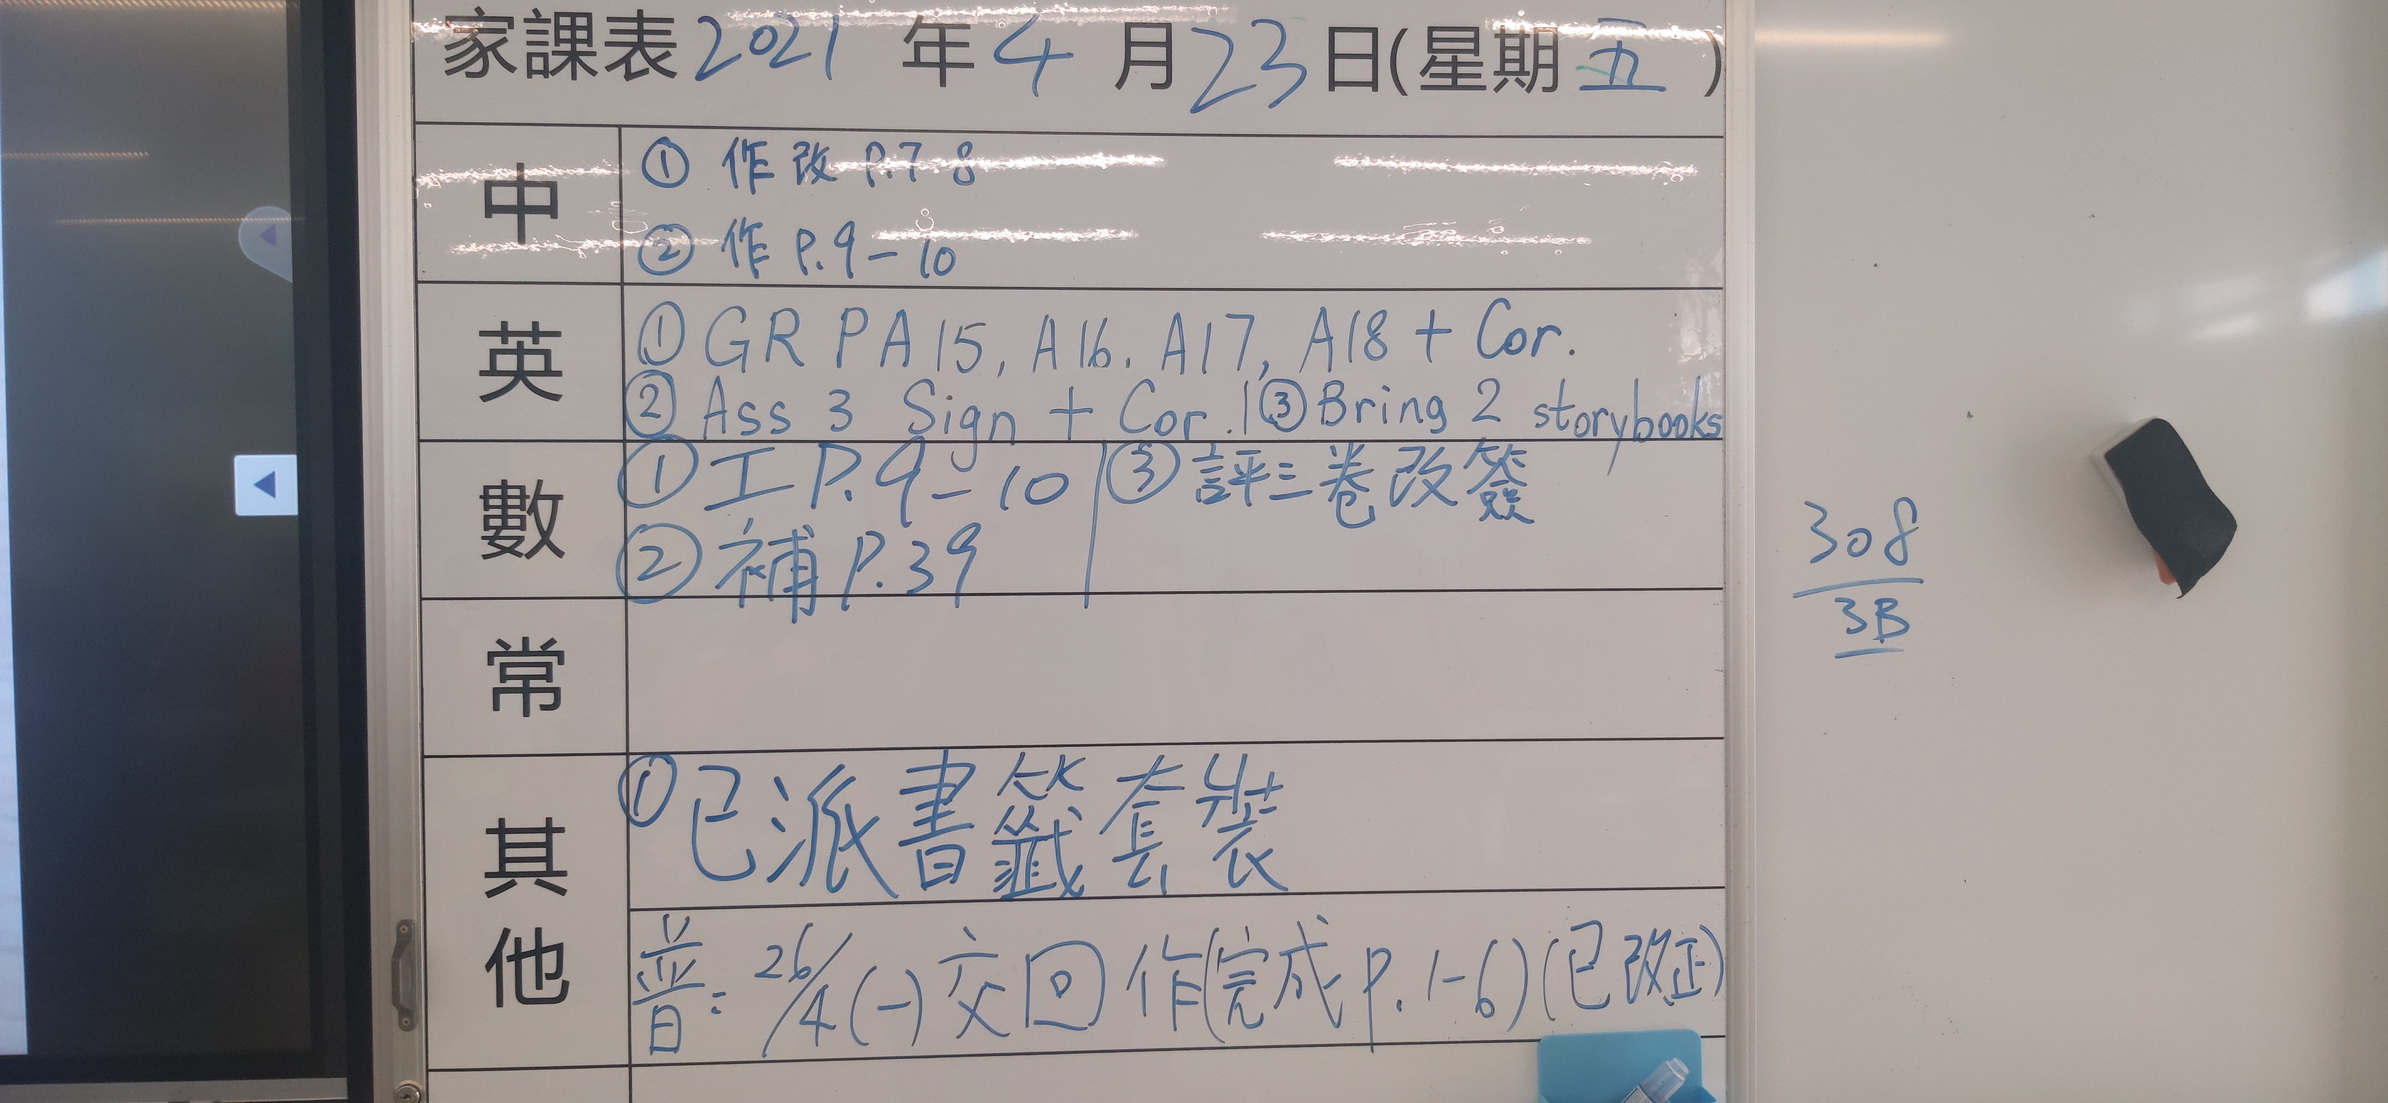 家課表 2021 年 4 月 23 日(星期 五 )
中
① 作改 P.7-8
② 作 P.9-10
英
① GR P A15, A16, A17, A18 + Cor.
② Ass 3 Sign + Cor. | ③ Bring 2 storybooks
數
① 工 P.9-10 | ③ 評三卷改簽
② 補 P.39
常
其他
① 已派書籤套裝
普: 26/4 (一) 交回 作(完成 P.1-6) (已改正)
308
3B